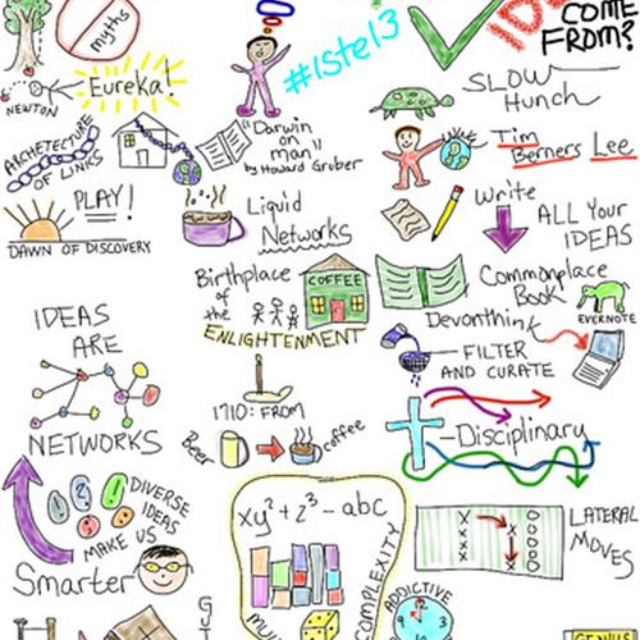 myths
#iste13
COME
FROM?
Eureka!
NEWTON
SLOW
Hunch
ARCHETECTURE
OF LINKS
"Darwin
on
man"
by Howard Gruber
Tim
Berners Lee
PLAY!
DAWN OF DISCOVERY
Liquid
Networks
Write
ALL Your
IDEAS
Birthplace
of
the
COFFEE
ENLIGHTENMENT
Commonplace
Book
EVERNOTE
Devonthink
FILTER
AND CURATE
IDEAS
ARE
NETWORKS
1710: FROM
Beer
coffee
-Disciplinary
DIVERSE
IDEAS
MAKE US
Smarter
xy² + z³ - abc
COMPLEXITY
X O
X X O
X O
X X O
LATERAL
MOVES
ADDICTIVE
12
9 3
GENIUS